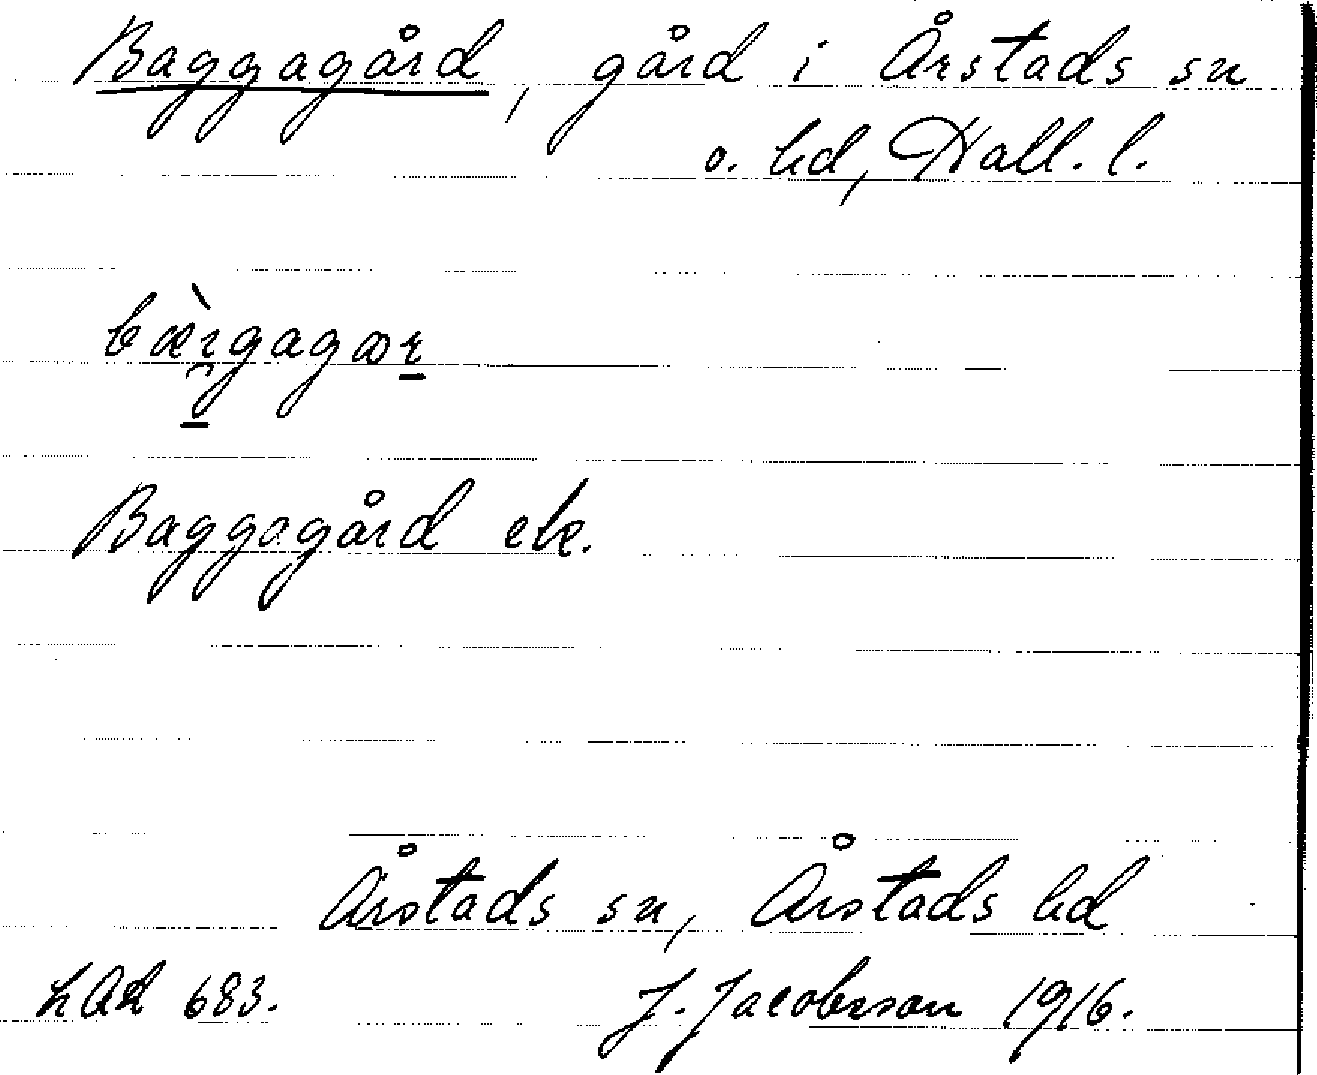 Baggagård, gård i Årstads sn
o. hd, Hall. l.
bærgagar
Baggagård ek.
Årstads sn, Årstads hd
683. J. Jacobsson 1916.